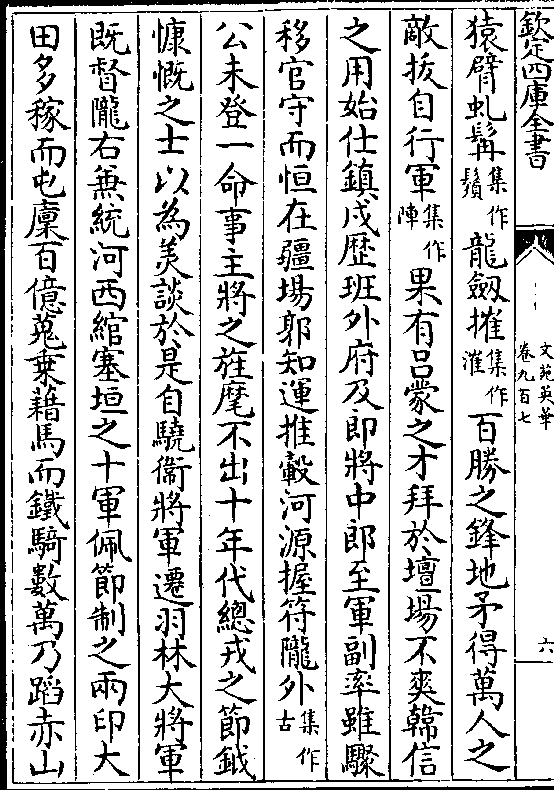 欽定四庫全書
文苑英華
卷九百七
六
猿臂虬髯集作鬚龍劔摧集作漼百勝之鋒地矛得萬人之
敵拔自行軍集作陣果有呂蒙之才拜於壇場不爽韓信
之用始仕鎮戍歷班外府及郎將中郎至軍副率雖驟
移官守而恒在疆場郭知運推轂河源握符隴外集作右
公未登一命事主將之旌麾不出十年代總戎之節鉞
慷慨之士以為美談於是自驍衞將軍遷羽林大將軍
既督隴右兼統河西綰塞垣之十軍佩節制之兩印大
田多稼而屯廩百億蒐乗藉馬而鐵騎數萬乃蹈赤山